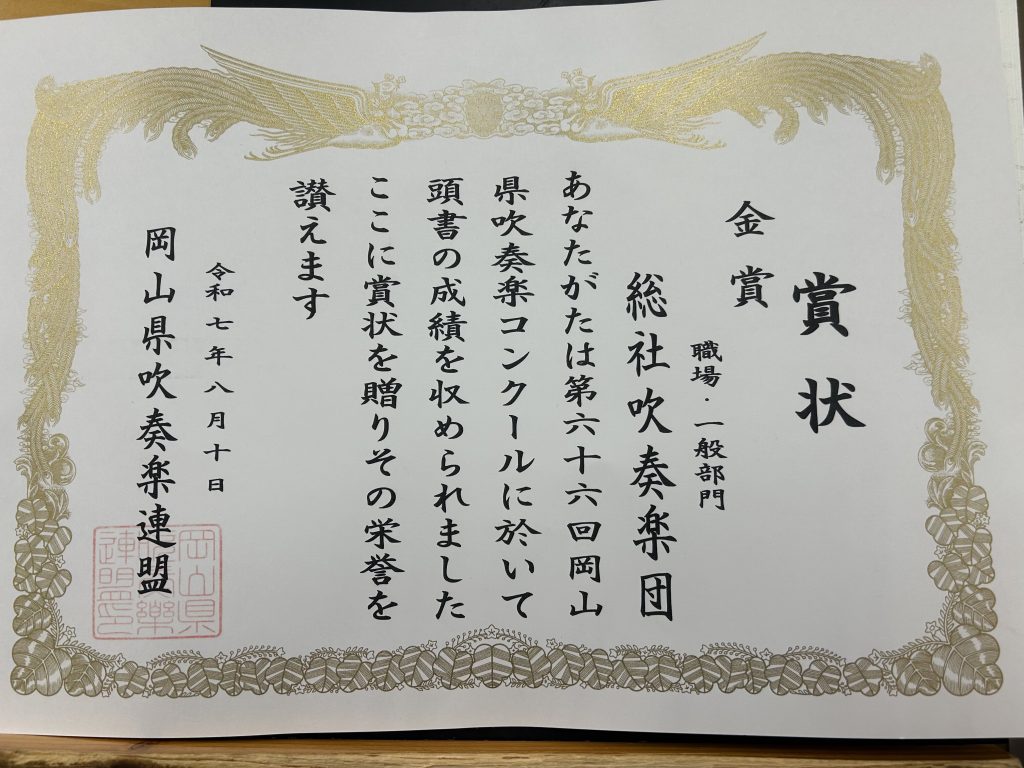 賞状
金賞
職場・一般部門
総社吹奏楽団
あなたがたは第六十六回岡山
県吹奏楽コンクールに於いて
頭書の成績を収められました
ここに賞状を贈りその栄誉を
讃えます
令和七年八月十日
岡山県吹奏楽連盟